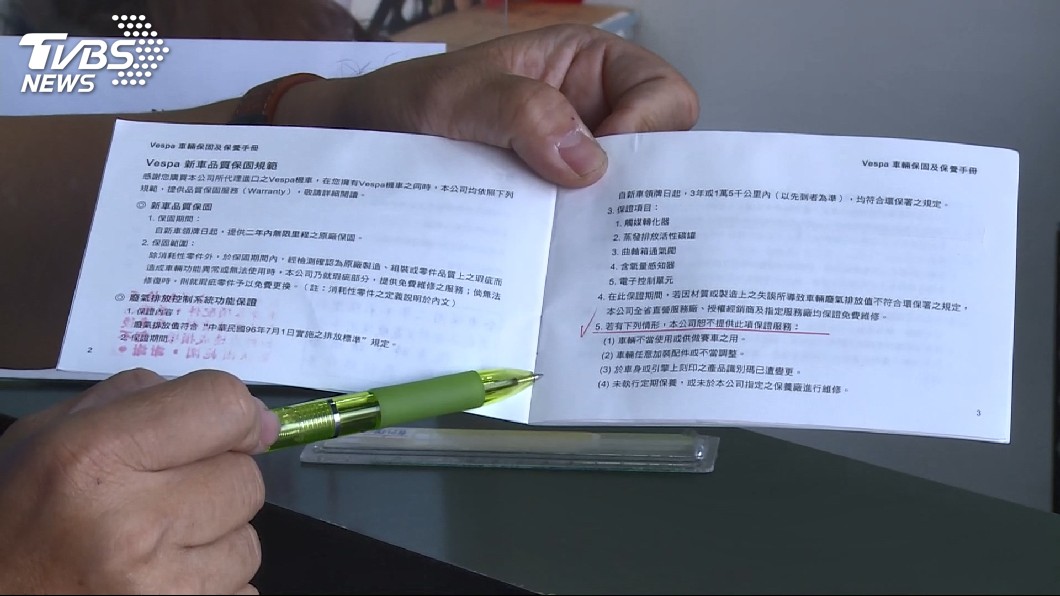 TVBS
NEWS
Vespa 車輛保固及保養手冊
Vespa 新車品質保固規範
感謝您購買本公司所代理進口之Vespa機車，在您擁有Vespa機車之同時，本公司均依照下列
規範，提供品質保固服務（Warranty），敬請詳細閱讀。
◎ 新車品質保固
1. 保固期間：
自新車領牌日起，提供二年內無限里程之原廠保固。
2. 保固範圍：
除消耗性零件外，於保固期間內、經檢測確認為原廠製造、組裝或零件品質上之瑕疵而
造成車輛功能異常或無法使用時，本公司乃就瑕疵部分，提供免費維修之服務；倘無法
修復時，則就瑕疵零件予以免費更換。（註：消耗性零件之定義說明於內文）
◎ 廢氣排放控制系統功能保證
1. 保證內容：
廢氣排放值符合“中華民國96年7月1日實施之排放標準”規定。
2. 保證期間：
2
Vespa 車輛保固及保養手冊
自新車領牌日起，3年或1萬5千公里內（以先到者為準），均符合環保署之規定。
3. 保證項目：
1. 觸媒轉化器
2. 蒸發排放活性碳罐
3. 曲軸箱通氣閥
4. 含氧量感知器
5. 電子控制單元
4. 在此保證期間，若因材質或製造上之失誤所導致車輛廢氣排放值不符合環保署之規定，
本公司全省直營服務廠、授權經銷商及指定服務廠均保證免費維修。
5. 若有下列情形，本公司恕不提供此項保證服務：
(1) 車輛不當使用或供做賽車之用。
(2) 車輛任意加裝配件或不當調整。
(3) 於車身或引擎上刻印之產品識別碼已遭變更。
(4) 未執行定期保養，或未於本公司指定之保養廠進行維修。
3